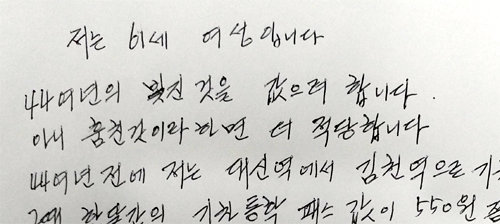 저는 61세 여성입니다
44여년의 빚진 것을 값으려 합니다.
아니 훔친것이라하면 더 적당합니다
44여년 전에 저는 대신역에서 김천역으로 기
그때 한달간의 기차 통학 패스 값이 550원